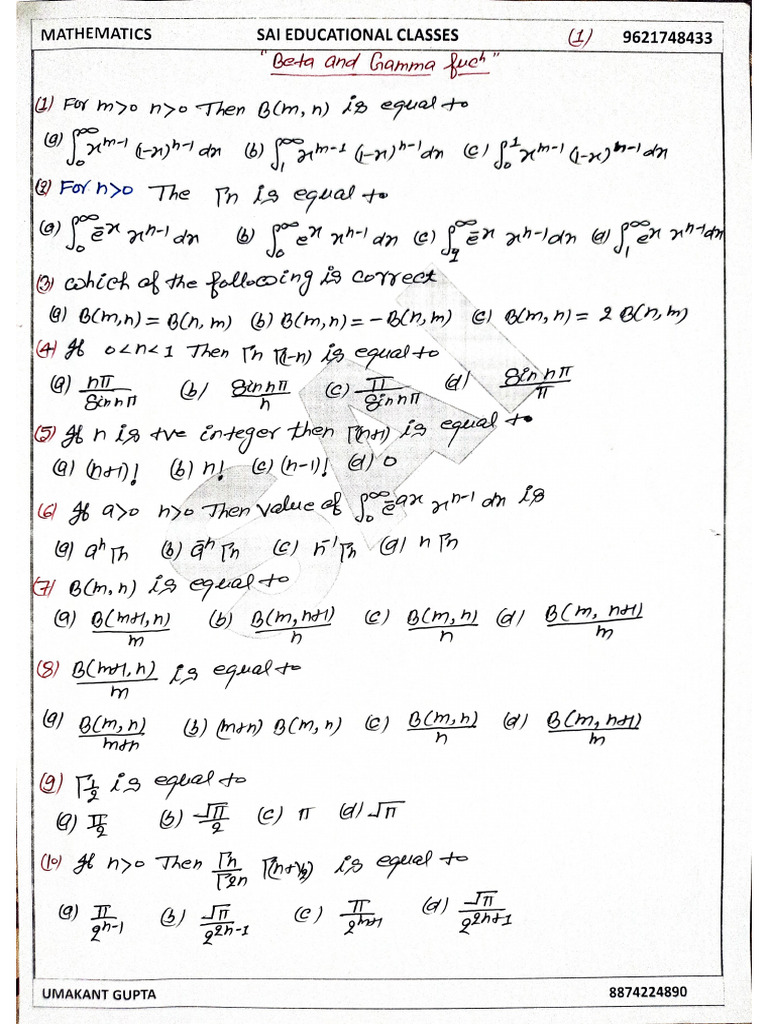 MATHEMATICS SAI EDUCATIONAL CLASSES (1) 9621748433
"Beta and Gamma fucⁿ"
(1) For m>0 n>0 Then B(m, n) is equal to
(a) ∫₀^∞ x^{m-1} (1-x)^{n-1} dx (b) ∫₁^∞ x^{m-1} (1-x)^{n-1} dx (c) ∫₀^1 x^{m-1} (1-x)^{n-1} dx
(2) For n>0 The Γn is equal to
(a) ∫₀^∞ e^{-x} x^{n-1} dx (b) ∫₀^∞ e^x x^{n-1} dx (c) ∫₂^∞ e^{-x} x^{n-1} dx (d) ∫₁^∞ e^x x^{n-1} dx
(3) which of the following is correct
(a) B(m,n) = B(n, m) (b) B(m,n) = -B(n,m) (c) B(m,n) = 2 B(n,m)
(4) If 0<n<1 Then Γn Γ(1-n) is equal to
(a) nπ/Sin nπ (b) Sin nπ/n (c) π/Sin nπ (d) Sin nπ/π
(5) If n is +ve integer then Γ(n+1) is equal to
(a) (n+1)! (b) n! (c) (n-1)! (d) 0
(6) If a>0 n>0 Then value of ∫₀^∞ e^{-ax} x^{n-1} dx is
(a) a^n Γn (b) a^{-n} Γn (c) n^{-1} Γn (d) n Γn
(7) B(m, n) is equal to
(a) B(m+1, n)/m (b) B(m, n+1)/n (c) B(m, n)/n (d) B(m, n+1)/m
(8) B(m+1, n)/m is equal to
(a) B(m, n)/m+n (b) (m+n) B(m, n) (c) B(m, n)/n (d) B(m, n+1)/m
(9) Γ1/2 is equal to
(a) π/2 (b) √π/2 (c) π (d) √π
(10) If n>0 Then Γn/Γ2n Γ(n+1/2) is equal to
(a) π/2^{n-1} (b) √π/2^{2n-1} (c) π/2^{n+1} (d) √π/2^{2n+1}
SAI
UMAKANT GUPTA 8874224890